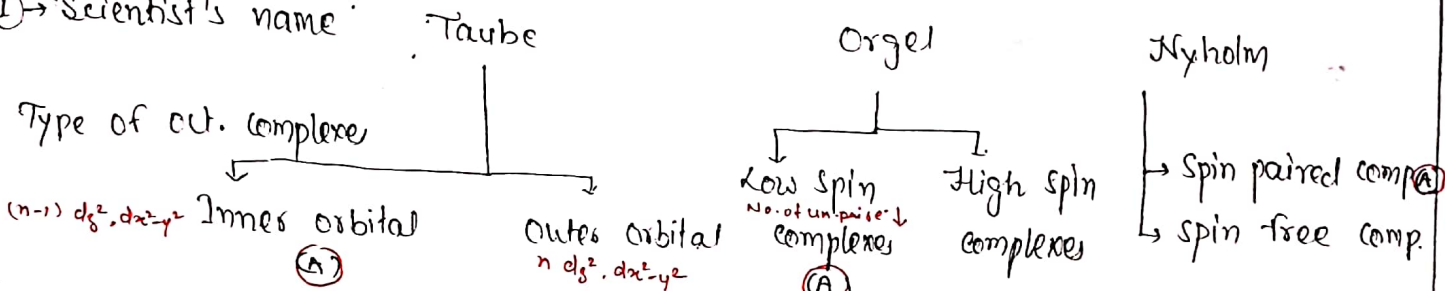 1)→ Scientist's name Taube Orgel Nyholm
Type of oct. complexes
(n-1) dz², dx²-y² Inner orbital
(A)
Outer orbital
n dz², dx²-y²
Low spin
No. of unpaire ↓
complexes
(A)
High spin
complexes
→ Spin paired comp (A)
→ spin free comp.